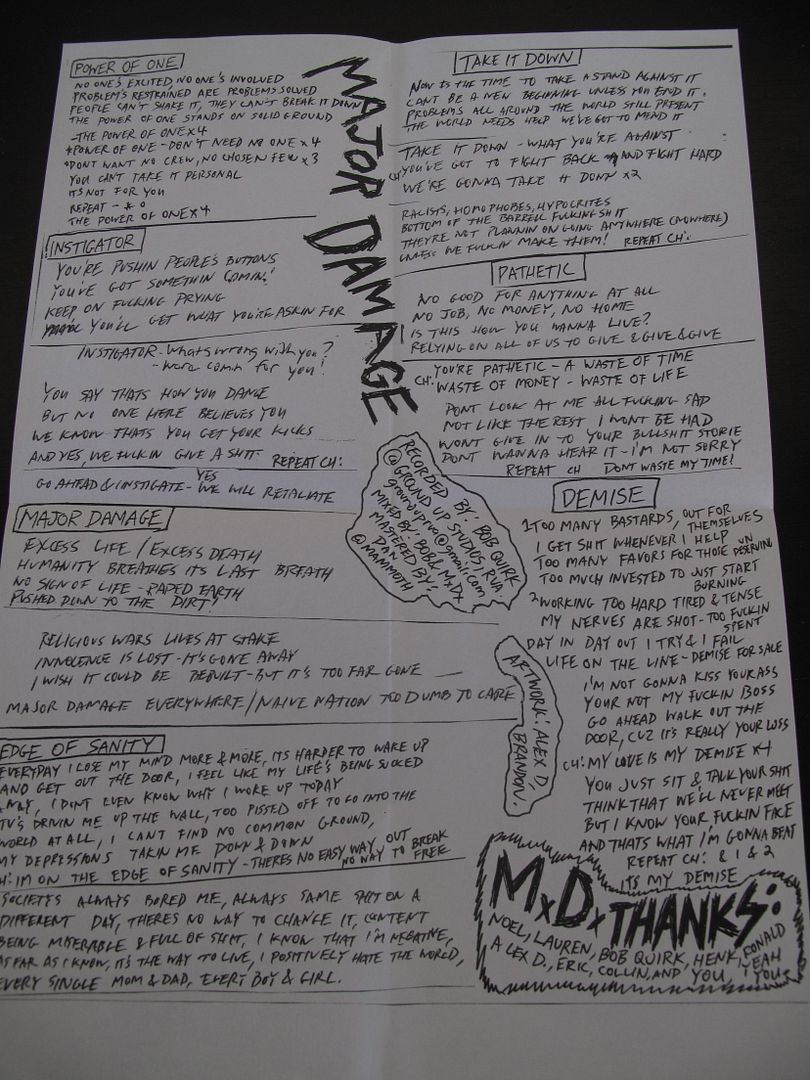 POWER OF ONE
NO ONE'S EXCITED NO ONE'S INVOLVED
PROBLEM'S RESTRAINED ARE PROBLEM'S SOLVED
PEOPLE CAN'T SHAKE IT, THEY CAN'T BREAK IT DOWN
THE POWER OF ONE STANDS ON SOLID GROUND
- THE POWER OF ONE X 4
*POWER OF ONE - DON'T NEED NO ONE X 4
°DONT WANT NO CREW, NO CHOSEN FEW X 3
YOU CAN'T TAKE IT PERSONAL
ITS NOT FOR YOU
REPEAT - * °
THE POWER OF ONE X 4
INSTIGATOR
YOU'RE PUSHIN PEOPLE'S BUTTONS
YOU'VE GOT SOMETHIN COMIN!
KEEP ON FUCKING PRYING
YOU'LL GET WHAT YOU'RE ASKIN FOR
INSTIGATOR - WHATS WRONG WITH YOU?
- WERE COMIN FOR YOU!
YOU SAY THATS HOW YOU DANCE
BUT NO ONE HERE BELIEVES YOU
WE KNOW THATS YOU GET YOUR KICKS
AND YES, WE FUCKIN GIVE A SHIT. REPEAT CH:
GO AHEAD & INSTIGATE - YES WE WILL RETALIATE
MAJOR DAMAGE
EXCESS LIFE / EXCESS DEATH
HUMANITY BREATHES ITS LAST BREATH
NO SIGN OF LIFE - RAPED EARTH
PUSHED DOWN TO THE DIRT!
RELIGIOUS WARS LIVES AT STAKE
INNOCENCE IS LOST - IT'S GONE AWAY
I WISH IT COULD BE REBUILT - BUT IT'S TOO FAR GONE
MAJOR DAMAGE EVERYWHERE / NAIVE NATION TOO DUMB TO CARE
EDGE OF SANITY
EVERYDAY I LOSE MY MIND MORE & MORE, ITS HARDER TO WAKE UP
AND GET OUT THE DOOR, I FEEL LIKE MY LIFE'S BEING SUCKED
AWAY, I DONT EVEN KNOW WHY I WOKE UP TODAY
TV'S DRIVIN ME UP THE WALL, TOO PISSED OFF TO GO INTO THE
WORLD AT ALL, I CANT FIND NO COMMON GROUND,
MY DEPRESSIONS TAKIN ME DOWN & DOWN
CH: IM ON THE EDGE OF SANITY - THERES NO EASY WAY OUT
NO WAY TO BREAK FREE
SOCIETYS ALWAYS BORED ME, ALWAYS SAME SHIT ON A
DIFFERENT DAY, THERES NO WAY TO CHANGE IT, CONTENT
BEING MISERABLE & FULL OF SHIT, I KNOW THAT I'M NEGATIVE,
AS FAR AS I KNOW, ITS THE WAY TO LIVE, I POSITIVELY HATE THE WORLD,
EVERY SINGLE MOM & DAD, EVERY BOY & GIRL.
MAJOR DAMAGE
RECORDED BY: BOB QUIRK
@ GROUND UP STUDIOS / RVA
MIXED BY: BOB & MxDx
MASTERED BY:
DAN
@ MAMMOTH
ARTWORK: ALEX D.
BRANDON!
TAKE IT DOWN
NOW IS THE TIME TO TAKE A STAND AGAINST IT
CANT BE A NEW BEGINNING UNLESS YOU END IT.
PROBLEMS ALL AROUND THE WORLD STILL PRESENT
THE WORLD NEEDS HELP WE'VE GOT TO MEND IT
TAKE IT DOWN - WHAT YOU'RE AGAINST
CH: YOU'VE GOT TO FIGHT BACK AND FIGHT HARD
WE'RE GONNA TAKE IT DOWN X2
RACISTS, HOMOPHOBES, HYPOCRITES
BOTTOM OF THE BARRELL FUCKING SHIT
THEYRE NOT PLANNIN ON GOING ANYWHERE (NOWHERE)
UNLESS WE FUCKIN MAKE THEM! REPEAT CH:
PATHETIC
NO GOOD FOR ANYTHING AT ALL
NO JOB, NO MONEY, NO HOME
IS THIS HOW YOU WANNA LIVE?
RELYING ON ALL OF US TO GIVE & GIVE & GIVE
CH: YOU'RE PATHETIC - A WASTE OF TIME
WASTE OF MONEY - WASTE OF LIFE
DONT LOOK AT ME ALL FUCKING SAD
NOT LIKE THE REST I WONT BE HAD
WONT GIVE IN TO YOUR BULLSHIT STORIE
DONT WANNA HEAR IT - I'M NOT SORRY
REPEAT CH DONT WASTE MY TIME!
DEMISE
1 TOO MANY BASTARDS, OUT FOR THEMSELVES
I GET SHIT WHENEVER I HELP
TOO MANY FAVORS FOR THOSE UNDESERVING
TOO MUCH INVESTED TO JUST START BURNING
2 WORKING TOO HARD TIRED & TENSE
MY NERVES ARE SHOT - TOO FUCKIN SPENT
DAY IN DAY OUT I TRY & I FAIL
LIFE ON THE LINE - DEMISE FOR SALE
I'M NOT GONNA KISS YOUR ASS
YOUR NOT MY FUCKIN BOSS
GO AHEAD WALK OUT THE
DOOR, CUZ IT'S REALLY YOUR LOSS
CH: MY LOVE IS MY DEMISE X4
YOU JUST SIT & TALK YOUR SHIT
THINK THAT WE'LL NEVER MEET
BUT I KNOW YOUR FUCKIN FACE
AND THATS WHAT I'M GONNA BEAT
REPEAT CH: & 1 & 2
ITS MY DEMISE
MxDx THANKS:
NOEL, LAUREN, BOB QUIRK, HENK, RONALD
ALEX D., ERIC, COLLIN, AND YOU, YEAH YOU.